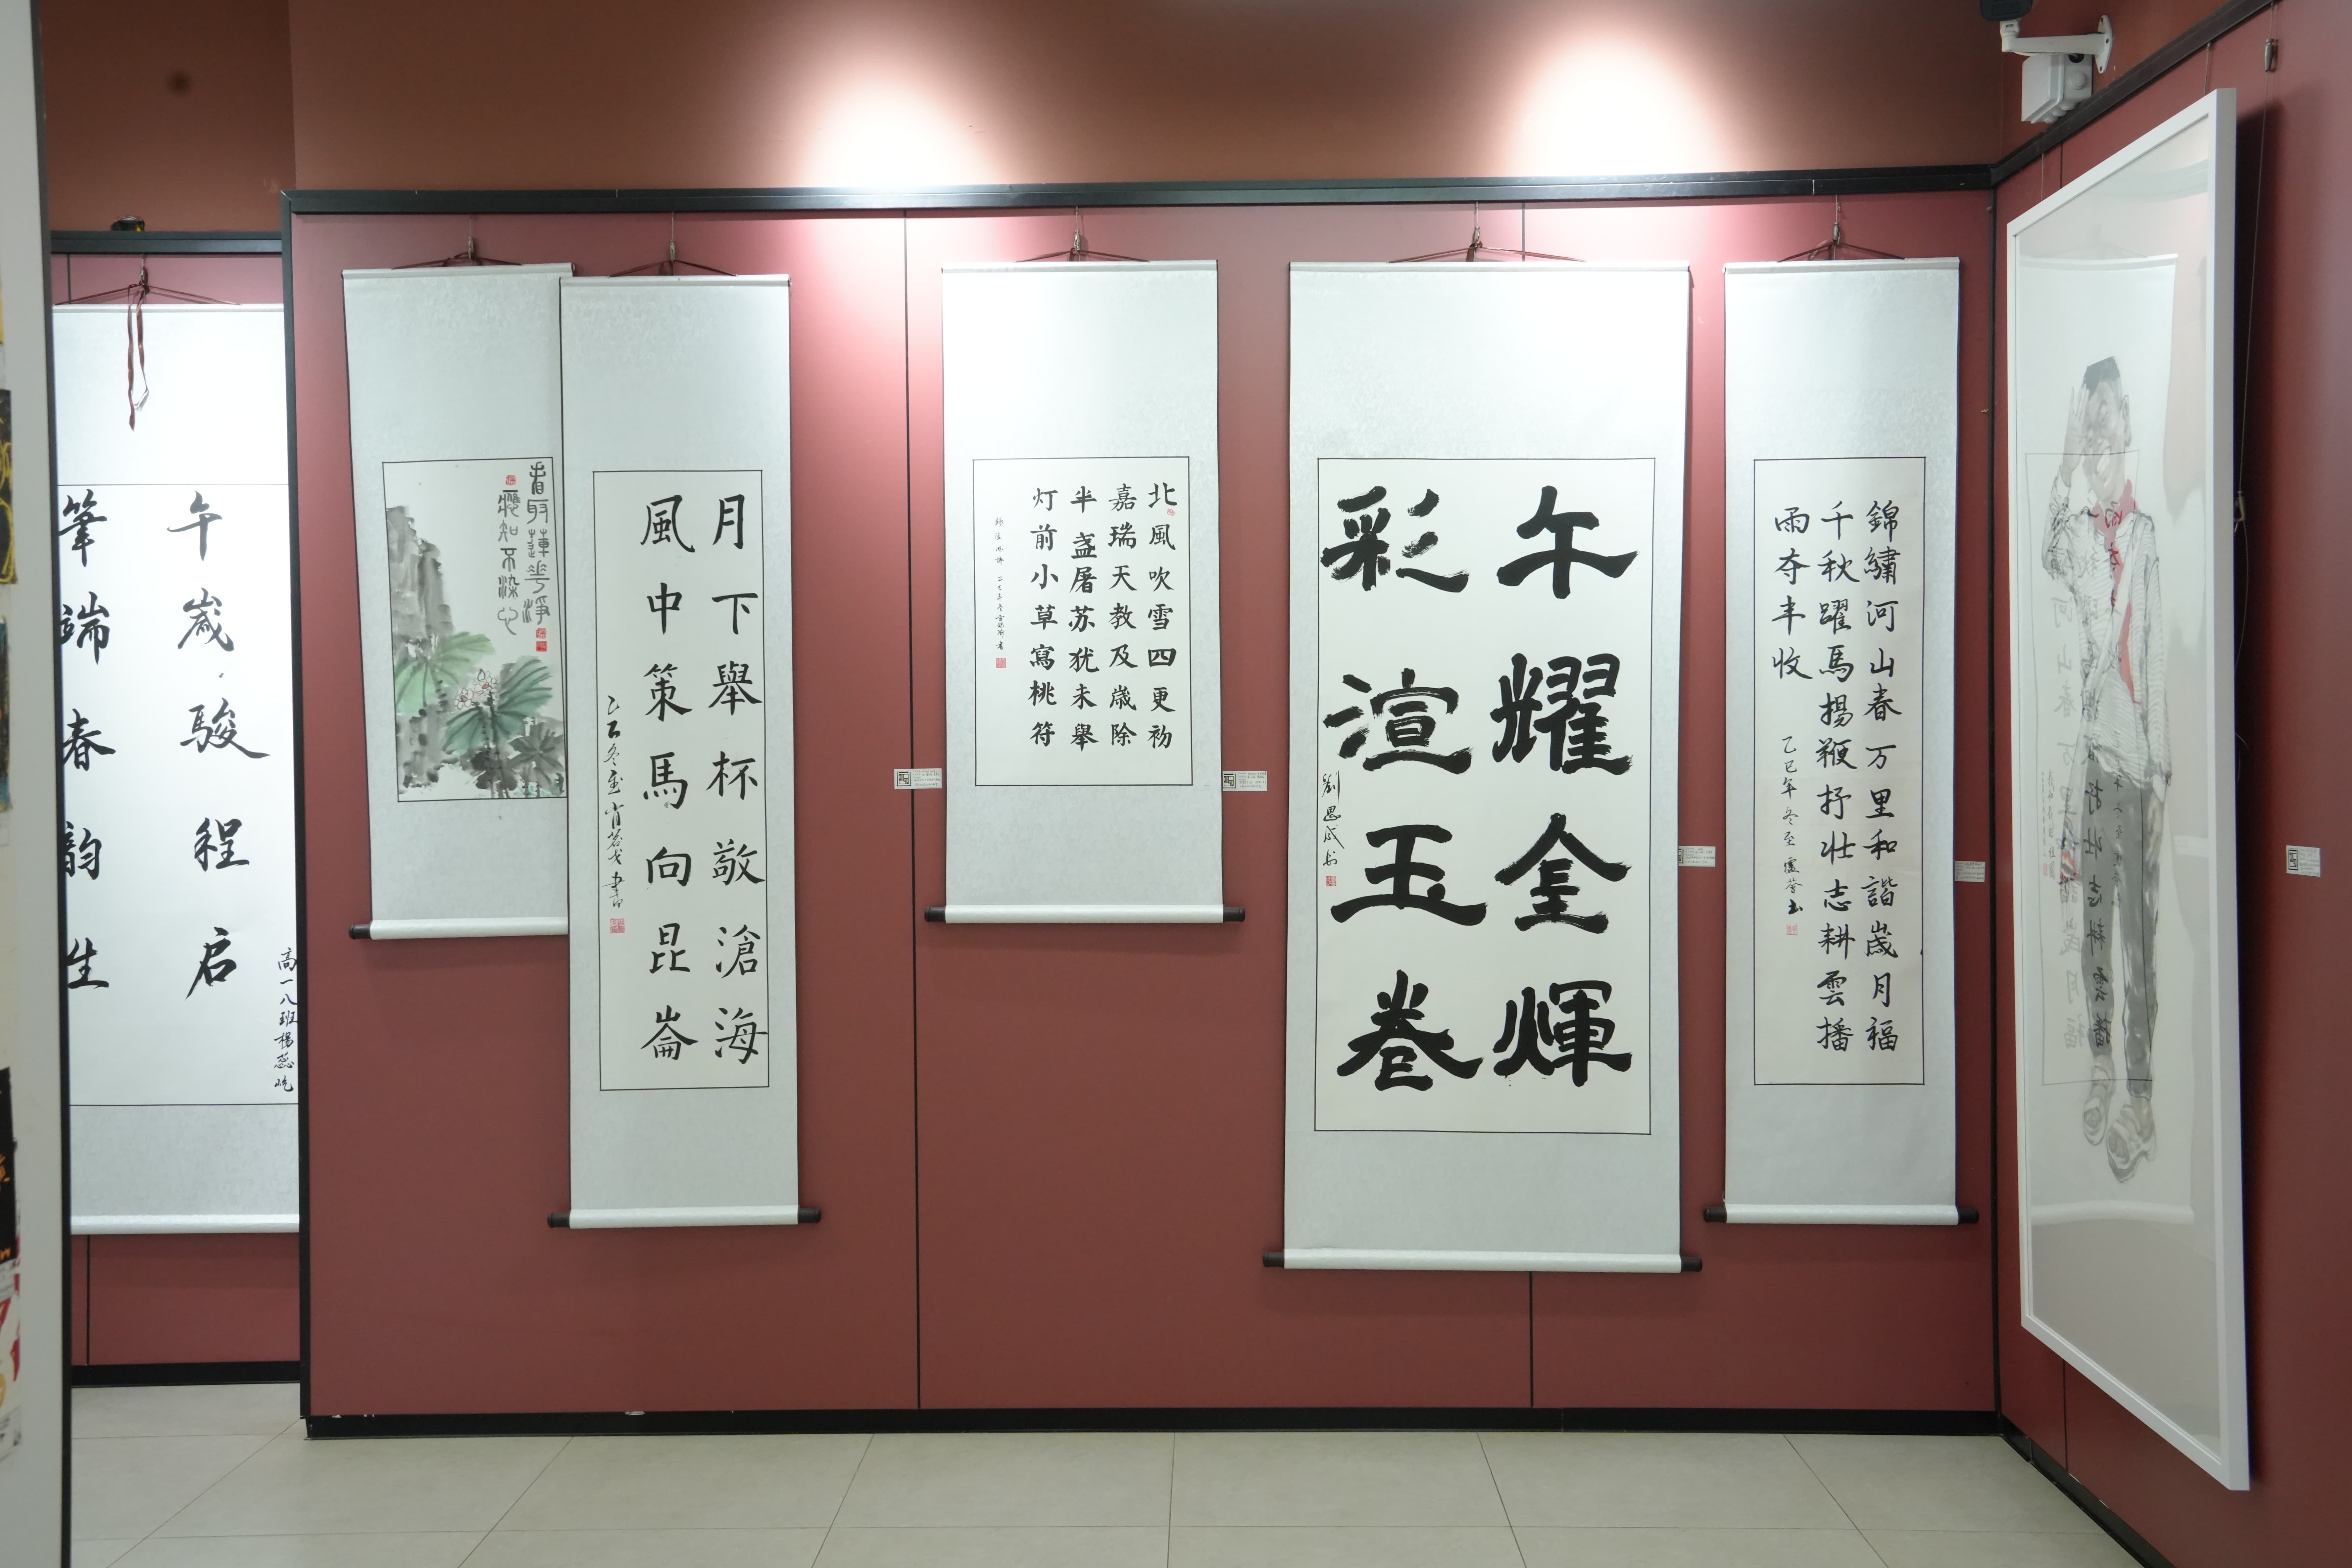 午歲駿程启
筆端春韵生
高一八班楊蕊屹
看取蓮花淨
應知不染心
月下舉杯敬滄海
風中策馬向昆崙
乙巳冬至肖茗戈書
北風吹雪四更初
嘉瑞天教及歲除
半盏屠苏犹未舉
灯前小草寫桃符
午耀金輝
彩渲玉卷
劉思成书
錦繡河山春万里和諧歲月福
千秋躍馬揚鞭抒壯志耕雲播
雨夺丰收
乙巳年冬至盧薈书